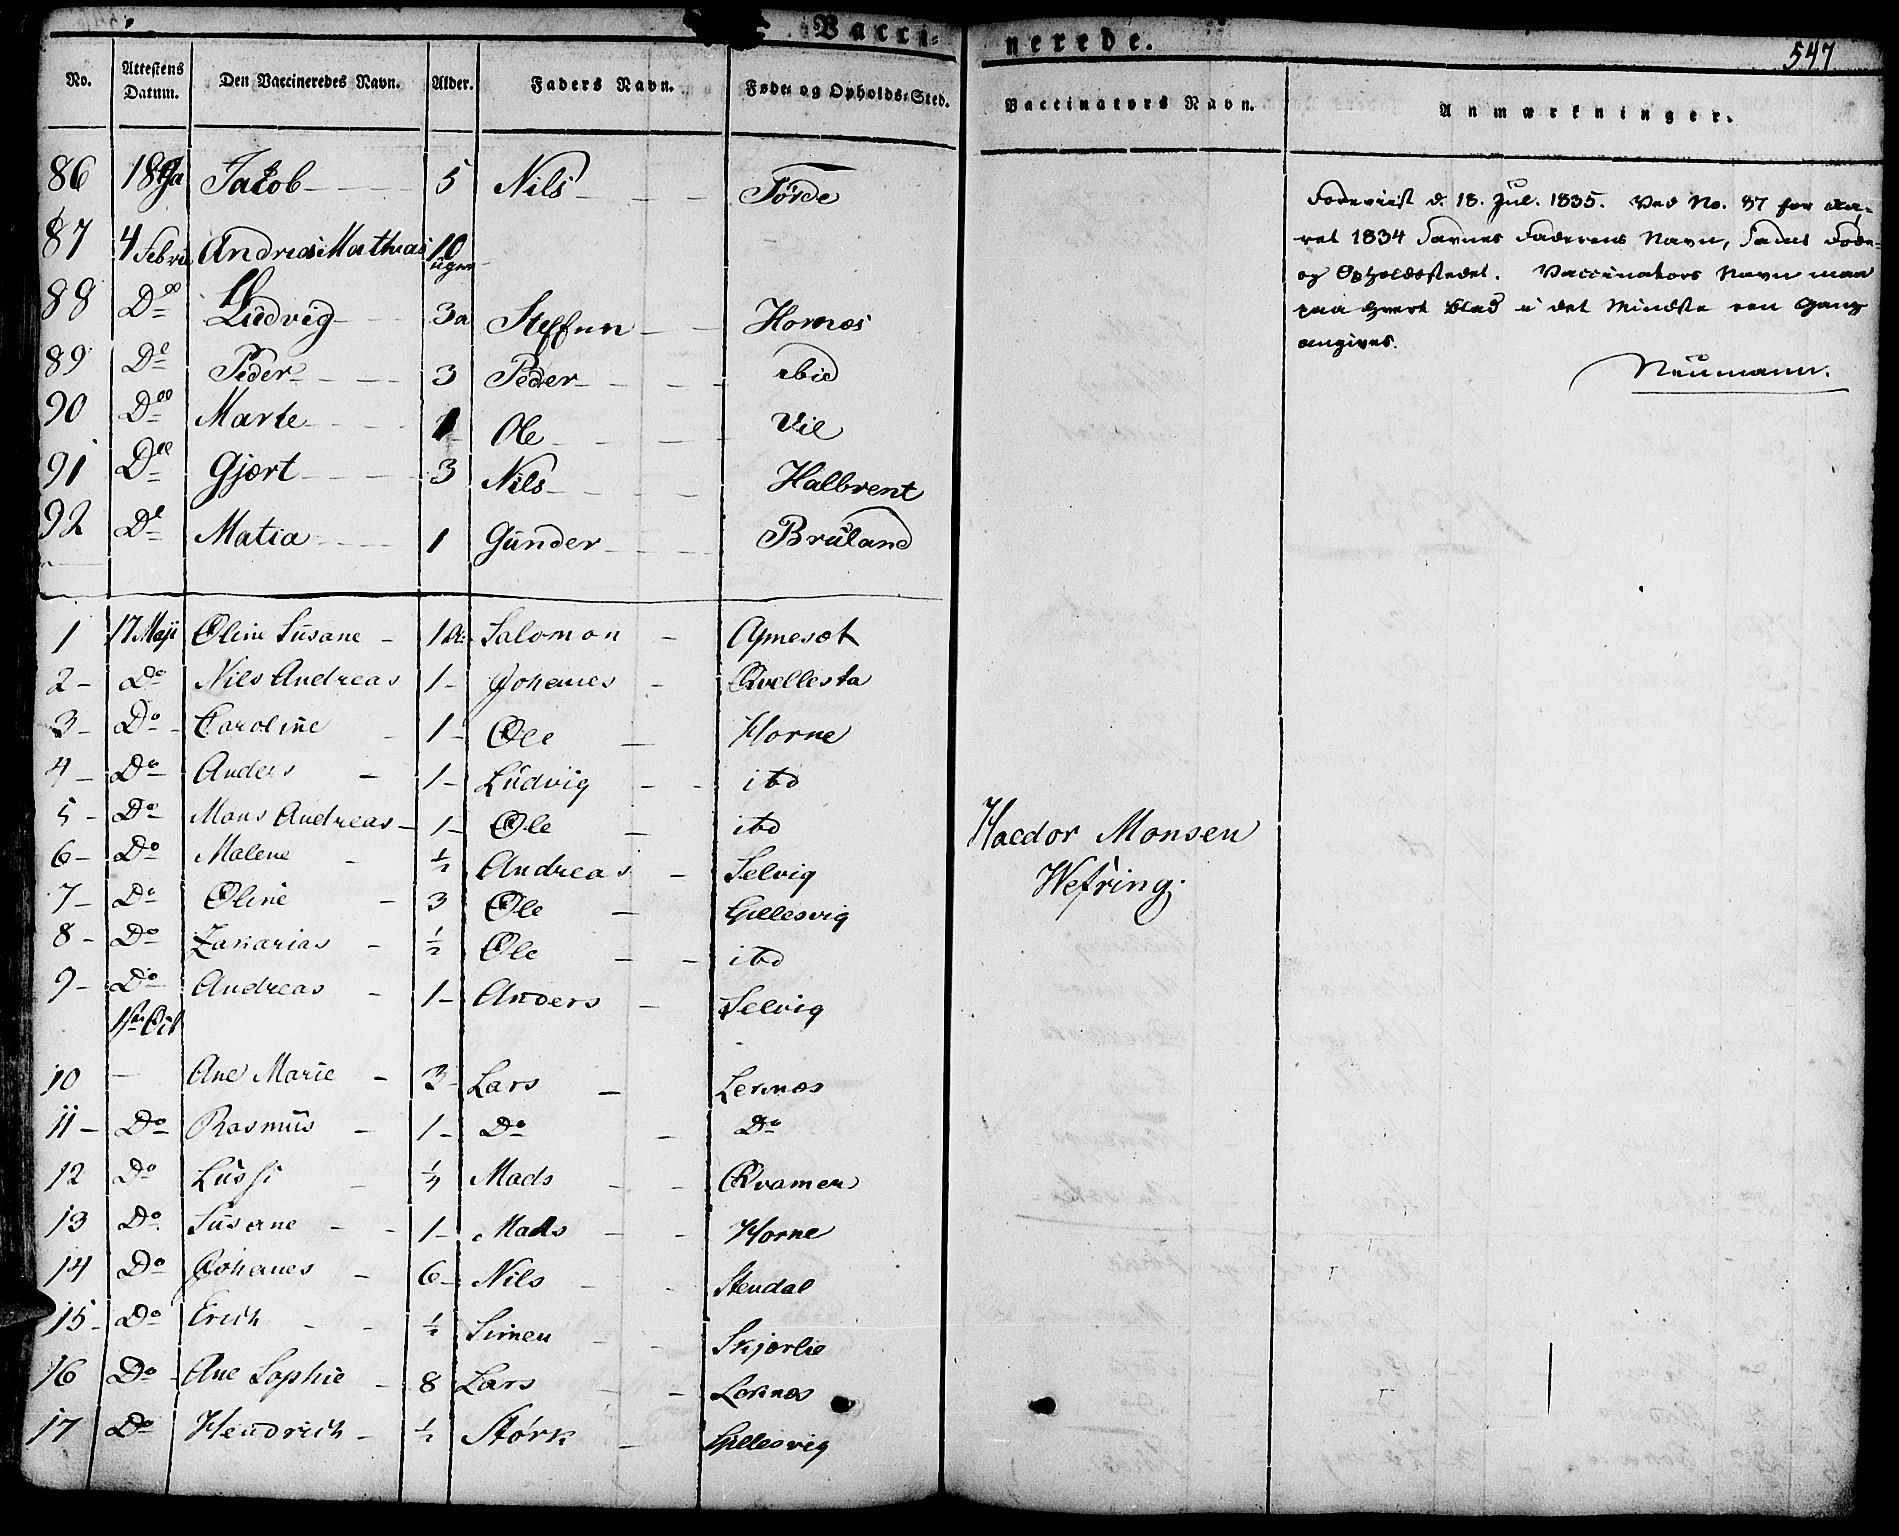 Vaccinerede.
547
No. Attestens Datum. Den Vaccineredes Navn. Alder. Faders Navn. Føde- og Opholds-Sted. Vaccinators Navn. Anmærkninger.
86 Jakob 5 Nils Førde
87 4 Februar Andreas Mathias 10 uger
88 Do Ludvig 3a Steffen Hornes
89 Do Peder 3 Peder ibid
90 Do Marte 1 Ole Vie
91 Do Gjert 3 Nils Halbrent
92 Do Matia 1 Gunder Bruland
Foreviist d. 18. Jul. 1835. Ved No. 87 for Aa-
ret 1834 savnes Faderens Navn, samt Føde-
og Opholdsstedet. Vaccinators Navn maa
paa hvert Blad i det Mindste een Gang
angives.
Neumann.
1 17 Maji Oline Susane 1 Salomon
2 Do Nils Andreas 1 Johanes Qvellesta
3 Do Caroline 1 Ole Horne
4 Do Anders 1 Ludvig ibd
5 Do Mons Andreas 1 Ole ibd
6 Do Malene ½ Andreas Selvig
7 Do Oline 3 Ole Gillesvig
8 Do Zakarias ½ Ole ibd
9 Do Andreas 1 Anders Selvig
Hacdor Monsen
Wefring.
10 Ane Marie 3 Lars Lernes
11 Do Rasmus 1 Do Do
12 Do Lussi ¼ Mads Qvamen
13 Do Susane 1 Mads Horne
14 Do Johanes 6 Nils Stendal
15 Do Erich ½ Simen Skjerlie
16 Do Ane Sophie 8 Lars Lernes
17 Do Hendrich ½ Størk Gillesvig